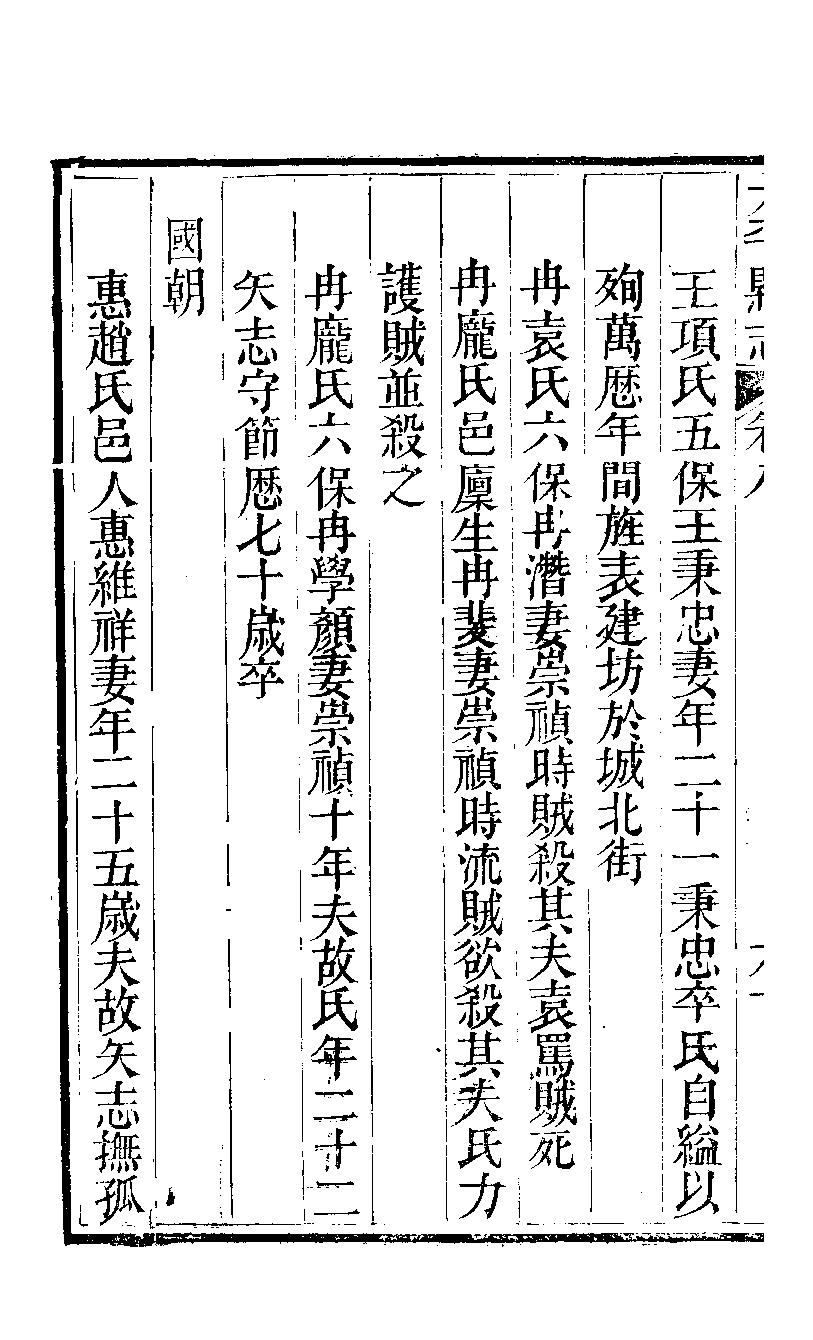 縣志 卷八
王項氏五保王秉忠妻年二十一秉忠卒氏自縊以
殉萬厯年間旌表建坊於城北街
冉袁氏六保冉潛妻崇禎時賊殺其夫袁罵賊死
冉龐氏邑廩生冉斐妻崇禎時流賊欲殺其夫氏力
護賊並殺之
冉龐氏六保冉學顏妻崇禎十年夫故氏年二十二
矢志守節厯七十歲卒
國朝
惠趙氏邑人惠維祥妻年二十五歲夫故矢志撫孤